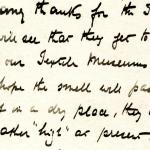 many thanks for the S
will see that they get to
our Textile Museums
hope the smell will pass
in a dry place, they
rather "high" at present